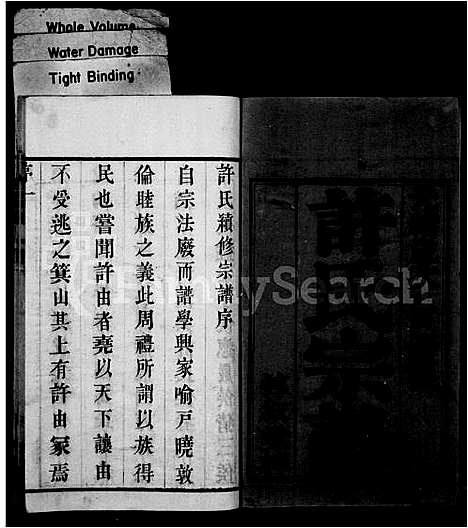 Whole Volume
Water Damage
Tight Binding
許氏宗
許氏續修宗譜序
自宗法廢而譜學興家喻戶曉敦
倫睦族之義此周禮所謂以族得
民也嘗聞許由者堯以天下讓由
不受逃之箕山其上有許由冢焉
序一
FamilySearch